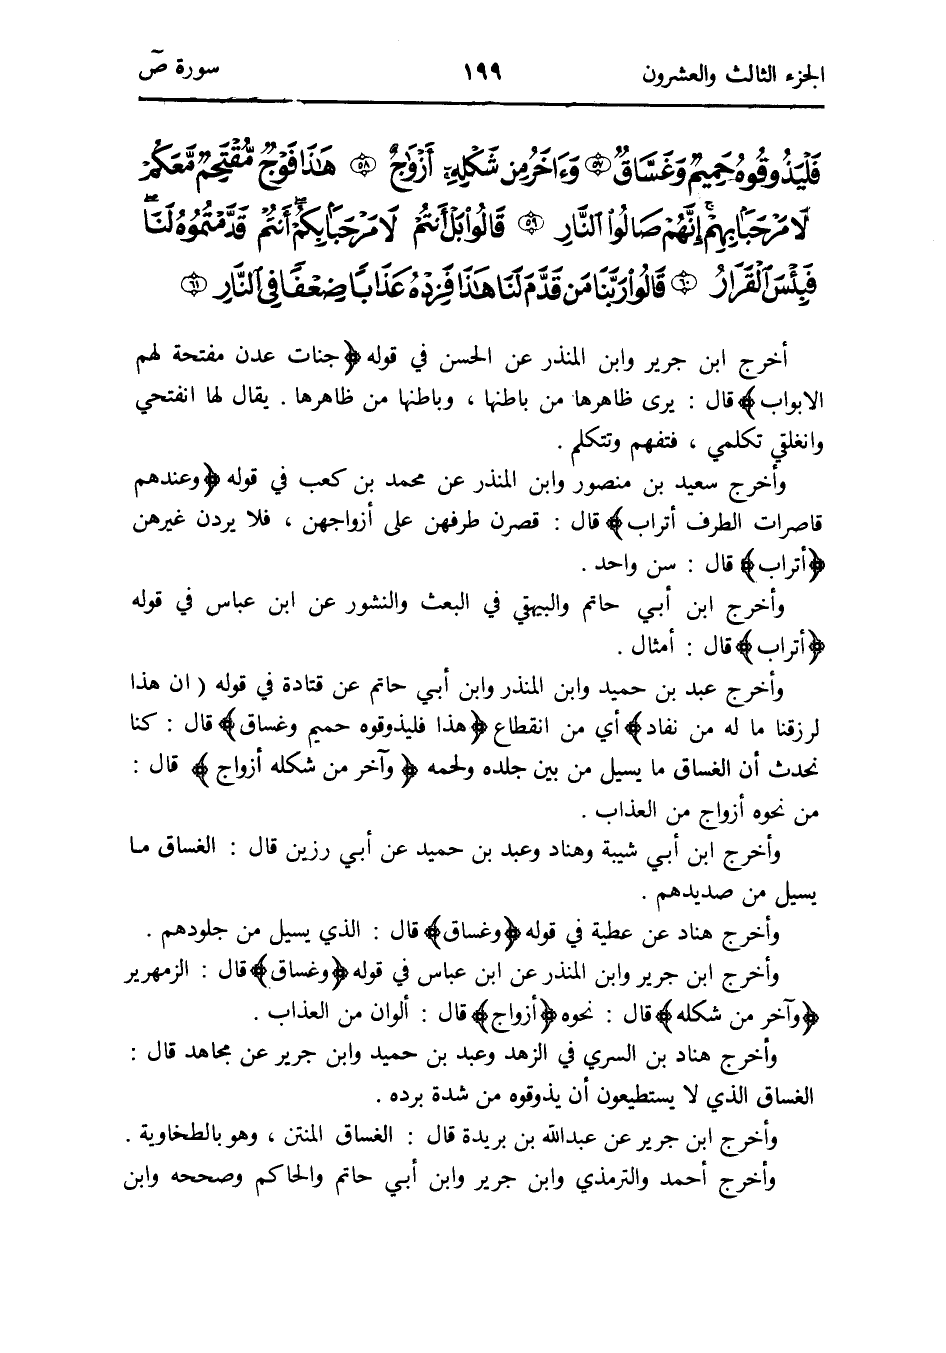 الجزء الثالث والعشرون ١٩٩ سورة صٓ
فَلْيَذُوقُوهُ حَمِيمٌ وَغَسَّاقٌ ﴿٥٧﴾ وَءَاخَرُ مِن شَكْلِهِۦٓ أَزْوَٰجٌ ﴿٥٨﴾ هَٰذَا فَوْجٌ مُّقْتَحِمٌ مَّعَكُمْ
لَا مَرْحَبًۢا بِهِمْ ۚ إِنَّهُمْ صَالُوا۟ النَّارِ ﴿٥٩﴾ قَالُوا۟ بَلْ أَنتُمْ لَا مَرْحَبًۢا بِكُمْ ۖ أَنتُمْ قَدَّمْتُمُوهُ لَنَا ۖ
فَبِئْسَ الْقَرَارُ ﴿٦٠﴾ قَالُوا۟ رَبَّنَا مَن قَدَّمَ لَنَا هَٰذَا فَزِدْهُ عَذَابًا ضِعْفًا فِى النَّارِ ﴿٦١﴾
أخرج ابن جرير وابن المنذر عن الحسن في قوله ﴿جنات عدن مفتحة لهم
الابواب﴾ قال : يرى ظاهرها من باطنها ، وباطنها من ظاهرها . يقال لها انفتحي
وانغلقي تكلمي ، فتفهم وتتكلم .
وأخرج سعيد بن منصور وابن المنذر عن محمد بن كعب في قوله ﴿وعندهم
قاصرات الطرف أتراب﴾ قال : قصرن طرفهن على أزواجهن ، فلا يردن غيرهن
﴿أتراب﴾ قال : سن واحد .
وأخرج ابن أبي حاتم والبيهقي في البعث والنشور عن ابن عباس في قوله
﴿أتراب﴾ قال : أمثال .
وأخرج عبد بن حميد وابن المنذر وابن أبي حاتم عن قتادة في قوله ( ان هذا
لرزقنا ما له من نفاد﴾ أي من انقطاع ﴿هذا فليذوقوه حميم وغساق﴾ قال : كنا
نحدث أن الغساق ما يسيل من بين جلده ولحمه ﴿وآخر من شكله أزواج﴾ قال :
من نحوه أزواج من العذاب .
وأخرج ابن أبي شيبة وهناد وعبد بن حميد عن أبي رزين قال : الغساق ما
يسيل من صديدهم .
وأخرج هناد عن عطية في قوله ﴿وغساق﴾ قال : الذي يسيل من جلودهم .
وأخرج ابن جرير وابن المنذر عن ابن عباس في قوله ﴿وغساق﴾ قال : الزمهرير
﴿وآخر من شكله﴾ قال : نحوه ﴿أزواج﴾ قال : ألوان من العذاب .
وأخرج هناد بن السري في الزهد وعبد بن حميد وابن جرير عن مجاهد قال :
الغساق الذي لا يستطيعون أن يذوقوه من شدة برده .
وأخرج ابن جرير عن عبدالله بن بريدة قال : الغساق المنتن ، وهو بالطخاوية .
وأخرج أحمد والترمذي وابن جرير وابن أبي حاتم والحاكم وصححه وابن